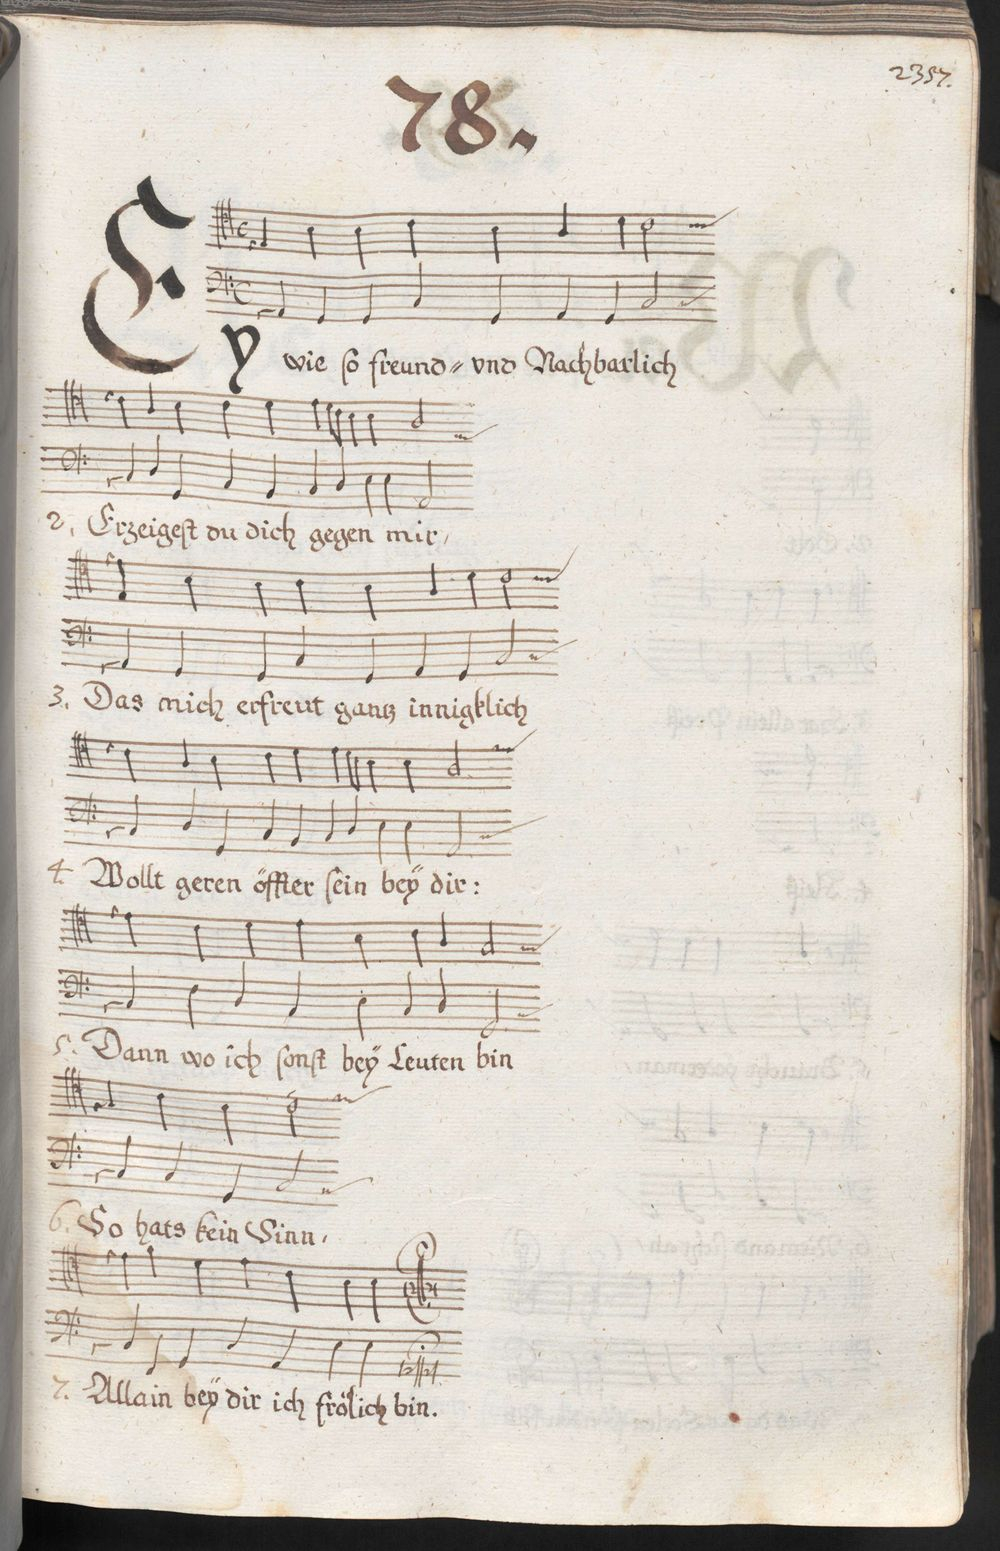 2357.
78.
Ey wie so freund⸗ vnd Nachbarlich
2. Erzeigest du dich gegen mir,
3. Das mich erfreut gantz innigklich
4. Wollt geren öffter sein beÿ dir:
5. Dann wo ich sonst beÿ Leuten bin
6. So hats kein Sinn,
7. Allain beÿ dir ich frölich bin.